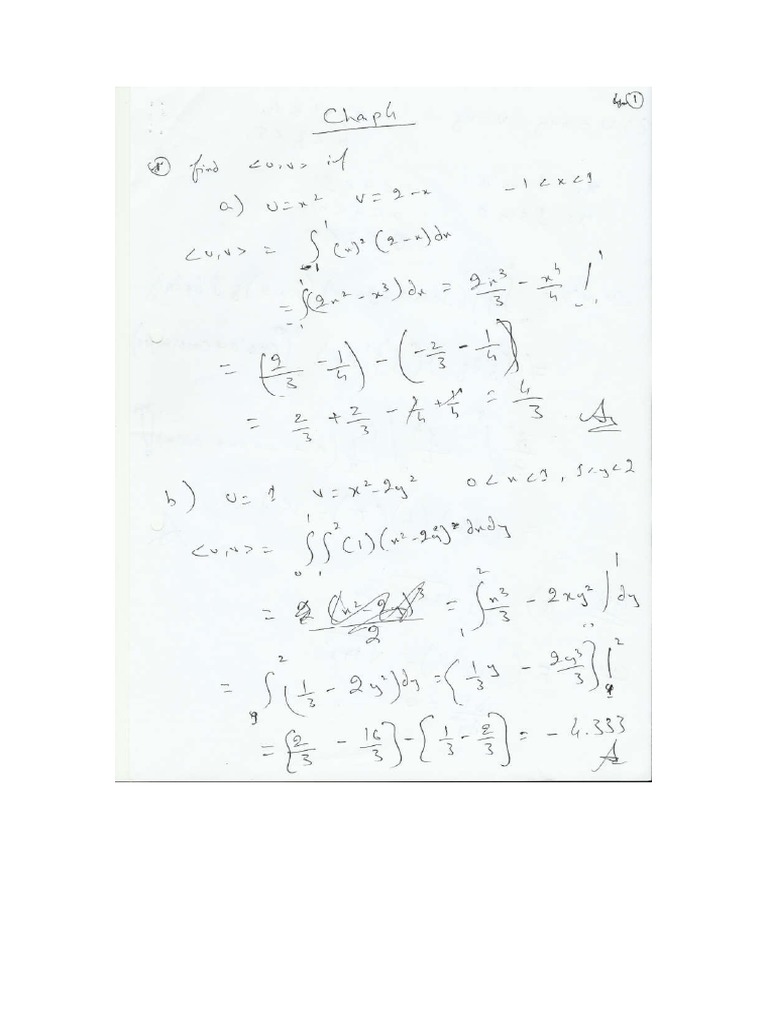 ①
Chap 4
find <u,v> if
a) u=x² v=2-x -1<x<1
<u,v> = ∫₋₁¹ (x)² (2-x) dx
= ∫₋₁¹ (2x² - x³) dx = 2x³/3 - x⁴/4 |₋₁¹
= (2/3 - 1/4) - (-2/3 - 1/4)
= 2/3 + 2/3 - 1/4 + 1/4 = 4/3
b) u=1 v=x²-2y² 0<x<1, 1<y<2
<u,v> = ∫₀¹ ∫₁² (1)(x²-2y²) dx dy
= = ∫₁² x³/3 - 2xy² |₀¹ dy
= ∫₁² (1/3 - 2y²) dy = {1/3 y - 2y³/3} |₁²
= {2/3 - 16/3} - {1/3 - 2/3} = - 4.333